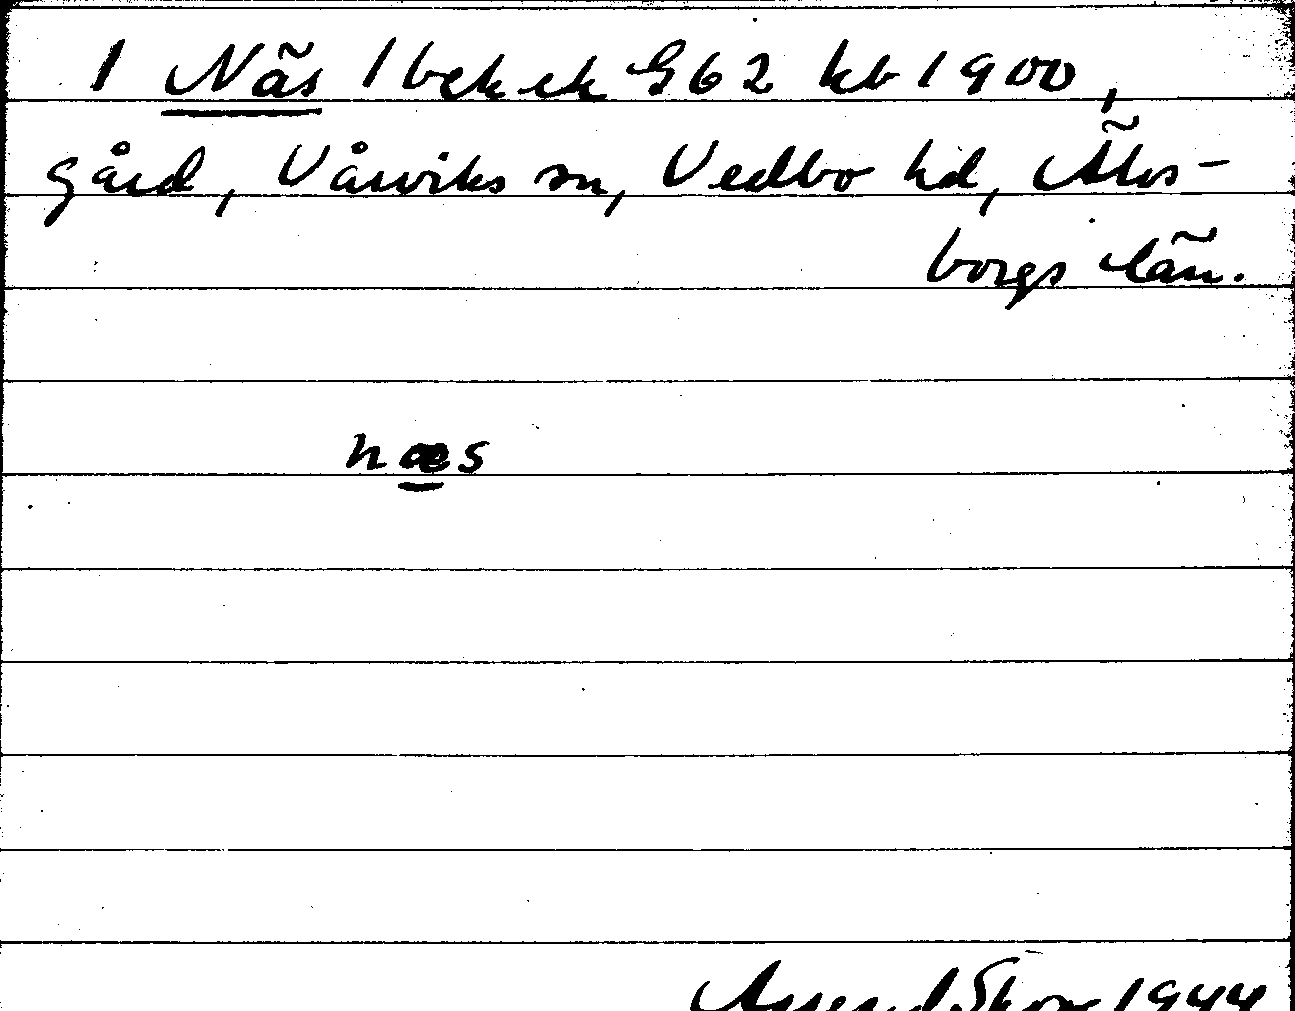 1 Näs 1 bek ek G62 kb 1900,
gård, Vårviks sn, Vedbo hd, Älvs-
borgs län.
næs
1944